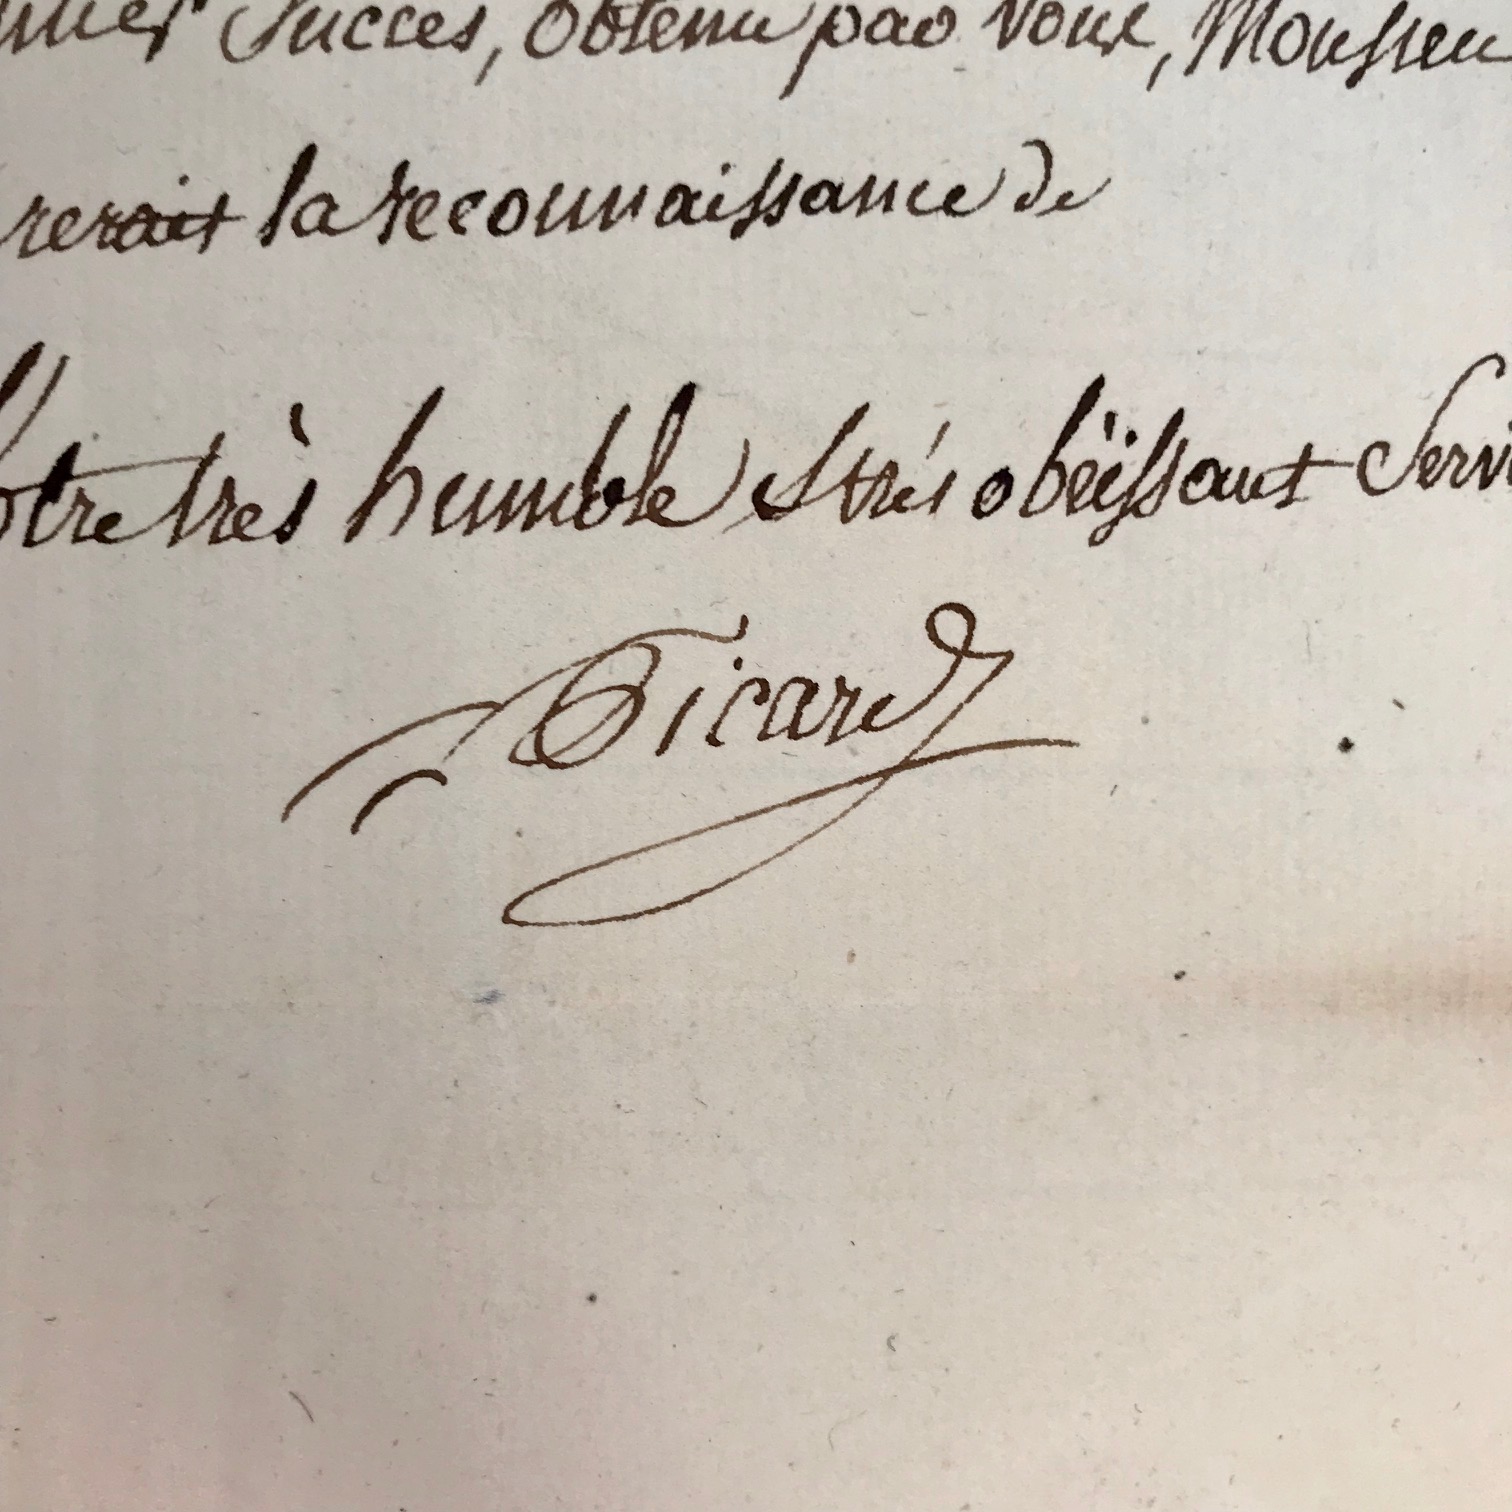 succès, obtenu par vous, Monsieu
rerait la reconnaissance de
Votre très humble et très obëissant Servi
Sicard